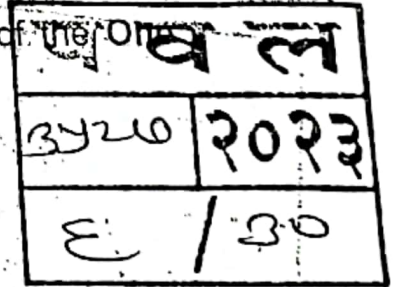 of the One
प व ल
३५२७ २०२३
६ / ३०